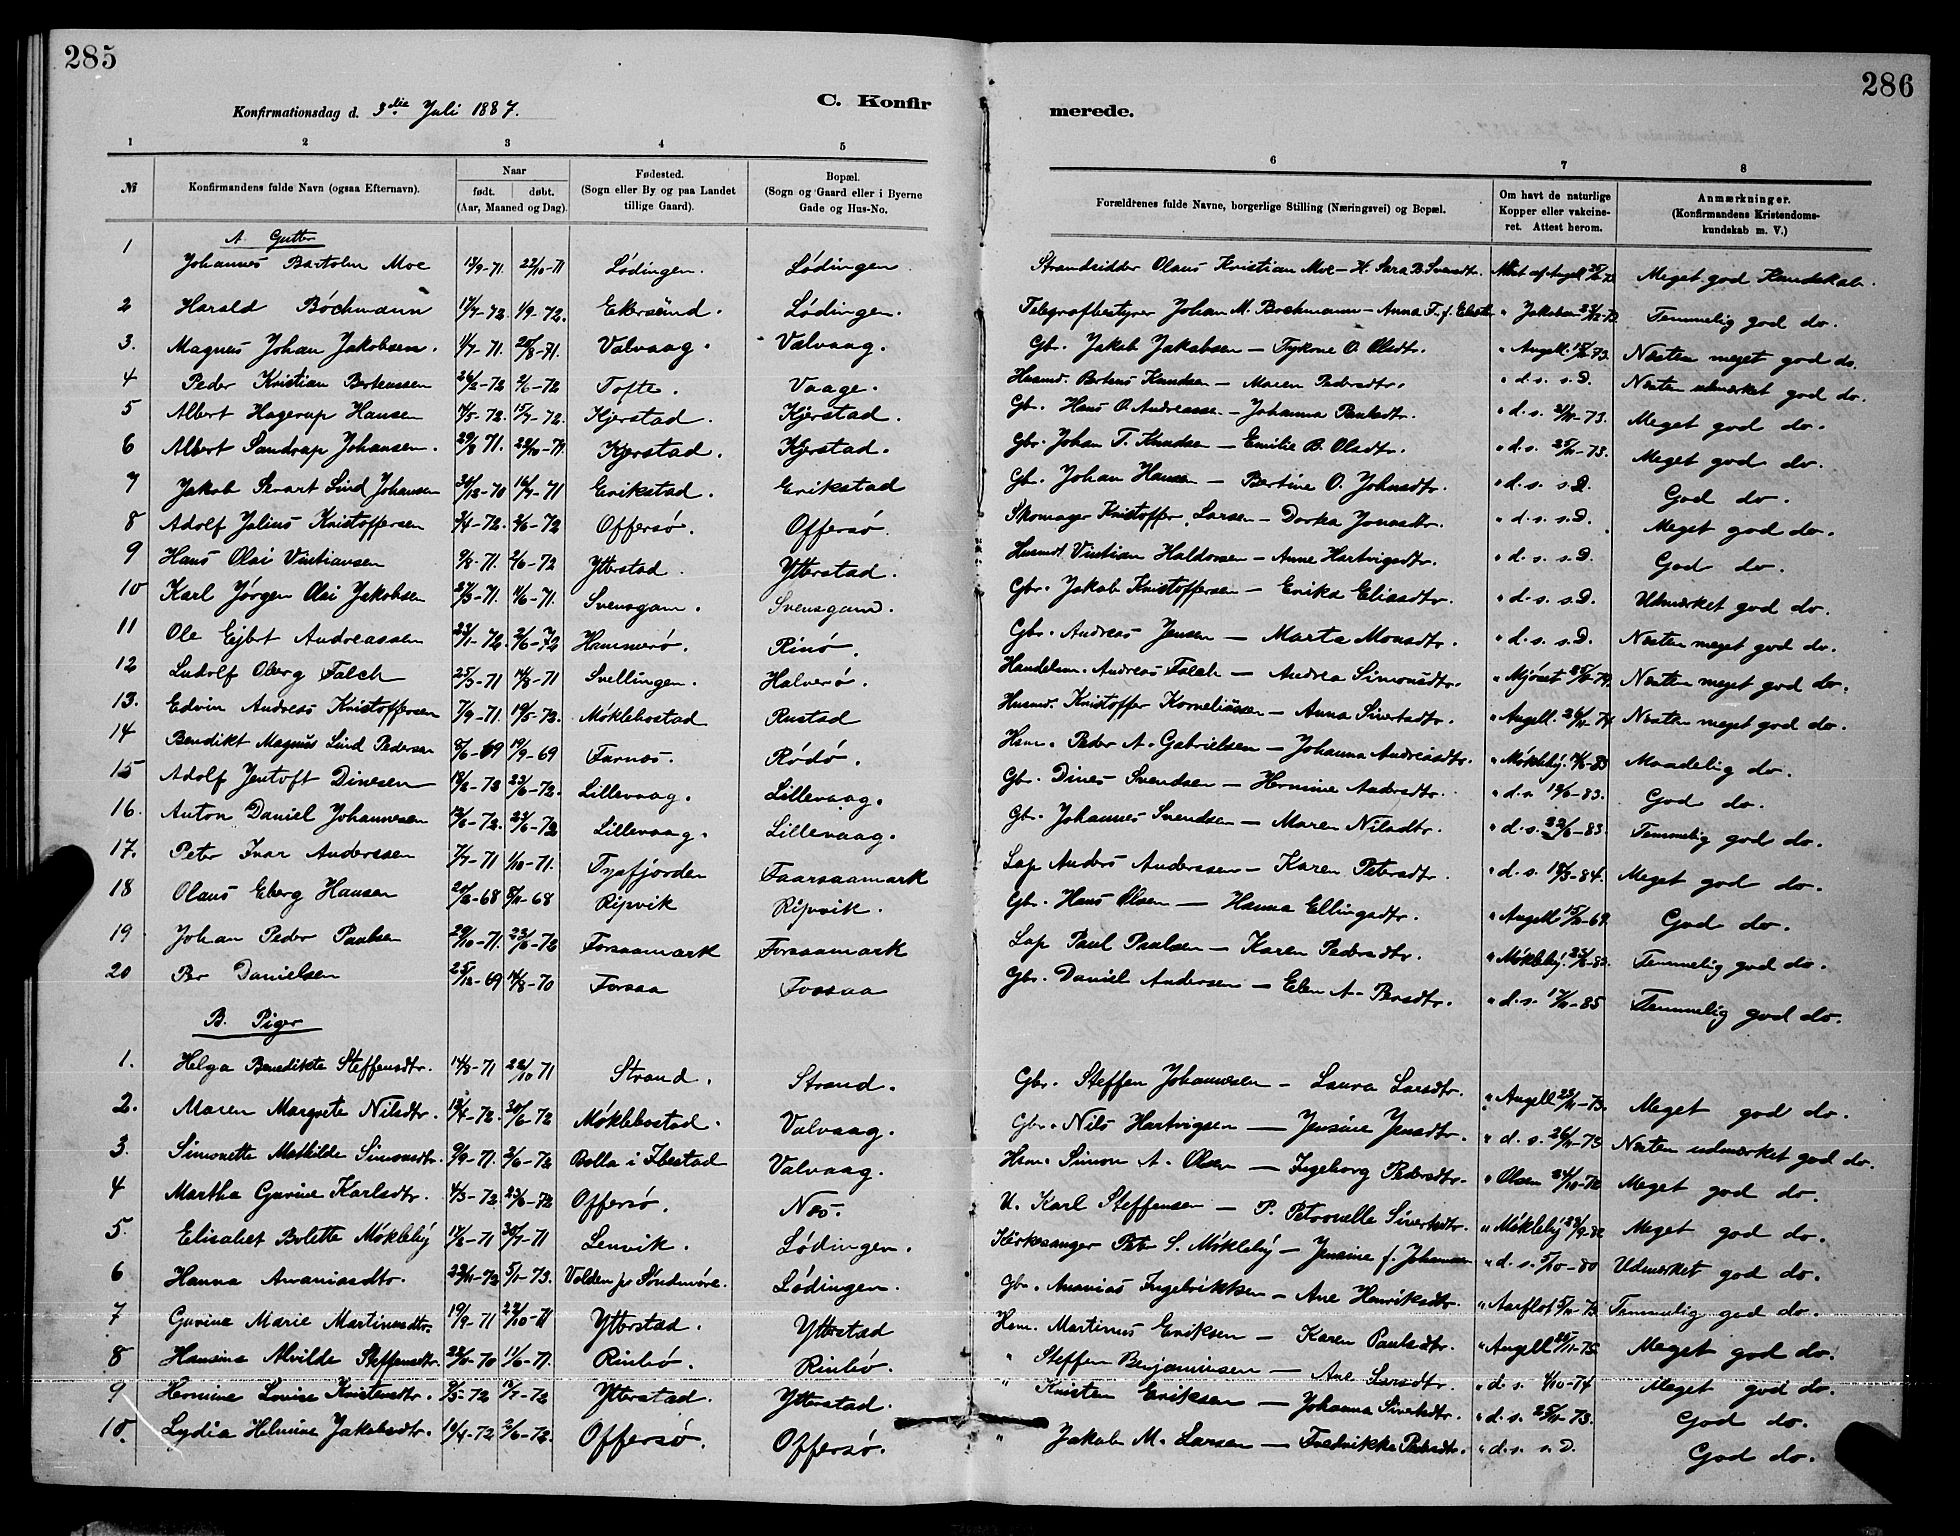 285
286
Konfirmationsdag d. 3die Juli 1887.
C. Konfir
merede.
1 2 3 4 5 6 7 8
№ Konfirmandens fulde Navn (ogsaa Efternavn). Naar født. døbt. (Aar, Maaned og Dag). Fødested. (Sogn eller By og paa Landet tillige Gaard). Bopæl. (Sogn og Gaard eller i Byerne Gade og Hus-No. Forældrenes fulde Navne, borgerlige Stilling (Næringsvei) og Bopæl. Om havt de naturlige Kopper eller vakcineret. Attest herom. Anmærkninger. (Konfirmandens Kristendomskundskab m. V.)
A. Gutter
1 Johannes Bartolm Moe 22/10-71 Lødingen. Lødingen. Strandsidder Olaus Kristian Moe - H. Sara B. Meget god Kundskab.
2 Harald Bóchmann 17/7-72. 1/9-72. Ekersund. Lødingen. Telegrafbestyrer Johan M. Bochmann - Anna F. f. " Jakobsen Temmelig god do.
3. Magnus Johan Jakobsen. 1/7-71. 20/8-71. Valvaag. Valvaag. Gb. Jakob Jakobsen - O. Olsdtr. " Angell Næsten meget god do.
4 Peder Kristian Berteussen 26/2-72 2/6-72 Tofte. Vaage. Husmd. Berteus Knudsen - Maren Pedersdtr. " d. s. s. D. Næsten udmærket god do.
5 Albert Hagerup Hansen 15/7-72. Kjerstad. Kjerstad. Gb. Hans O. Andreassen - Johanna Paulsdtr. " d. s. Meget god do.
6 Albert Sandrup Johansen. 29/8 71. 22/10-71. Kjerstad. Kjerstad. Gbr. Johan T. Knudsen - Emilie B. Olsdtr. " d. s. 25/11-73. Meget god do.
7 Jakob Skvart Lind Johansen 30/12-70 16/7-71 Erikstad. Erikstad Gb. Johan Hansen - Bertine O. Johnsdtr. " d. s. s. D. God do.
8 Adolf Julius Kristoffersen 3/4-72. 2/6-72 Offersø. Offersø. Skomager Kristoffer Larsen - Dorka Jonasdtr. " d. s. s. D. Meget god do.
9 Hans Olai Vintiansen 9/8-71. 2/6-72 Ytterstad. Ytterstad. Husmd. Vintian Haldorsen - Anne Hartvigsdtr. " d. s. s. D. God do.
10 Karl Jørgen Olai Jakobsen 27/3-71. 11/6-71. Svensgam. Svensgam. Gbr. Jakob Kristoffersen - Erika Eliasdtr. " d. s. s. D. Udmærket god do.
11 Ole Ejbert Andreassen 23/1-72. 2/6-72 Hammerø. Rinø. Gbr. Andreas Jensen - Marta Monsdtr. " d. s. s. D. Næsten meget god do.
12 Ludolf Oberg Falch 25/3-71 14/8-71 Svellingen. Halverø. Handelsm. Andreas Falch - Andrea Simonsdtr. " Mjøset Næsten meget god do.
13. Edvin Andreas Kristoffersen 7/9-71. 19/5-72. Møklebostad Rustad Husmd. Kristoffer Korneliussen - Anna Sivertsdtr. " Angell. 26/11-74 Næsten meget god do.
14 Benedikt Magnus Lind Pedersen 8/6-69 19/9-69 Farnes. Rødø. Hsm. Peder A. Gabrielsen - Johanna Andreasdtr. " Møkleby. Maadelig do.
15 Adolf Jentoft Dinesen 23/6-72. Lillevaag. Lillevaag. Gb. Dines Svendsen - Hermine Andersdtr. " d. s. 19/6-83. God do.
16. Anton Daniel Johannesen 23/6-72 Lillevaag. Lillevaag. Gb. Johannes Svendsen - Maren Nilsdtr. " d. s. 22/6-83. Temmelig god do.
17. Peter Ivar Anderssen 7/7-71 1/10-71. Tysfjorden Faarsaamark Lap Anders Anderssen - Karen Petersdtr. " d. s. 18/3-84. Meget god do.
18 Olaus Eberg Hansen 20/6-68 8/11-68 Ripvik Ripvik. Gb. Hans Olsen - Hanna Ellingsdtr. " Angell 15/10-69. God do.
19 Johan Peder Paulsen 29/10-71. 23/6-72 Forsaamark Forsaamark Lap Paul Paulsen - Karen Pedersdtr. " Møkleby. Temmelig god do.
20 Per Danielsen 25/12-69 14/8-70 Forsaa Forsaa Gbr. Daniel Andersen - Elen A. Persdtr. " d. s. Temmelig god do.
B. Piger
1. Helga Benedikte Steffensdtr. 14/8-71 22/10 71 Strand. Strand. Gbr. Steffen Johannesen - Laura Larsdtr. " Angell Meget god do.
2. Maren Margrete Nilsdtr. 30/6-72 Møklebostad. Valvaag. Gbr. Nils Hartvigsen - Jensine Jensdtr. " d. s. Næsten udmærket god do.
3. Simonette Mathilde Simonsdtr. 9/9-71. 2/6-72 Bolla i Ibestad Valvaag. Hsm. Simon A. Olsen - Ingeborg Pedersdtr. " Olsen Meget god do.
4 Martha Gurine Karlsdtr. 4/3-72 23/6-72 Offersø. Nes. U. Karl Steffensen - P. Petronelle Sivertsdtr. " Møkleby Meget god do.
5 Elisabet Bolette Møkleby 14/6-71 30/7-71 Lenvik. Lødingen. Kirkesanger Peter S. Møkleby - Jensine f. Johansen " d. s. 5/10-80 Udmærket god do.
6 Hanna Ananiasdtr. 23/11-72 5/1-73. Volden på Søndmøre. Lødingen. Gbr. Ananias Ingebrikksen - Ane Henriksdtr. " Aarflot Temmelig god do.
7 Gurine Marie Martinusdtr. 19/9-71 22/10-71 Ytterstad. Ytterstad Hsm. Martinus Eriksen - Karen Paulsdtr. " Angell Meget god do.
8 Hansine Alvilde Steffensdtr. 11/6-71. Rinbø. Rinbø. " Steffen Benjaminsen - Ane Larsdtr. " d. s. 4/10-74 Meget god do.
9 Hermine Lovise Kristensdtr. 9/5-72 7/7-72 Ytterstad. Ytterstad. " Kristen Eriksen - Johanna Sivertsdtr. " d. s. 25/11-73. God do.
10. Lydia Helmine Jakobsdtr. 10/4-72 2/6-72. Offersø. Offersø. " Jakob M. Larsen - Fredrikke Pedersdtr. " d. s. s. D. God do.